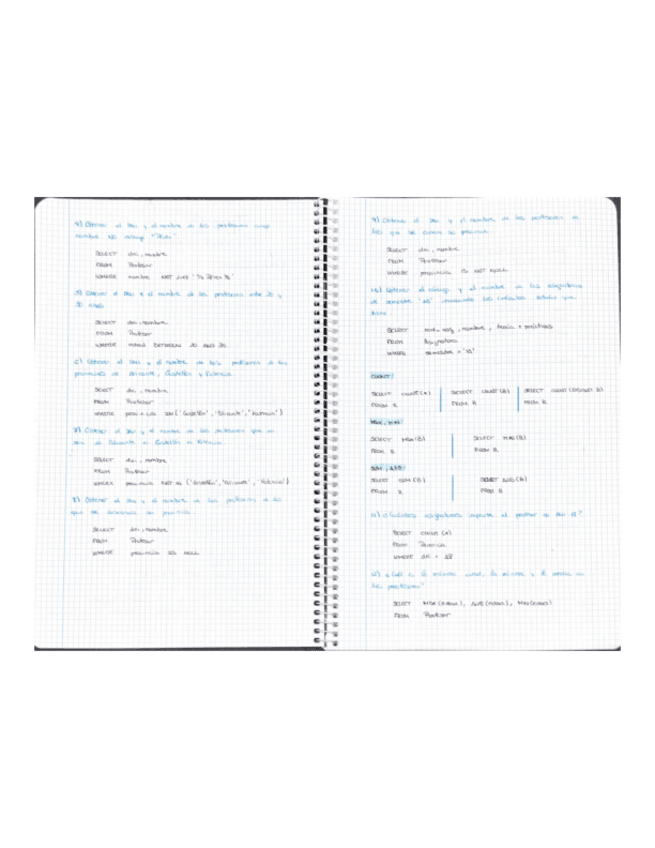 4) Obtener el DNI y el nombre de los profesores cuyo
nombre NO
SELECT dni, nombre
FROM Profesor
WHERE nombre NOT LIKE
5) Obtener el DNI y el nombre de los profesores entre 20 y
30 años
SELECT dni, nombre
FROM Profesor
WHERE BETWEEN 20 AND 30
6) Obtener el DNI y el nombre de los profesores de las
provincias de Alicante, Castellón y Valencia.
SELECT dni, nombre
FROM Profesor
WHERE provincia IN ('Castellón', 'Alicante', 'Valencia')
7) Obtener el DNI y el nombre de los profesores que no
sean de Alicante Castellón Valencia
SELECT dni, nombre
FROM Profesor
WHERE provincia NOT IN ('Castellón', 'Alicante', 'Valencia')
8) Obtener el DNI y el nombre de los profesores de los
que se desconoce su provincia.
SELECT dni, nombre
FROM Profesor
WHERE provincia IS NULL
9) Obtener el DNI y el nombre de los profesores de
los que se conoce su provincia
SELECT dni, nombre
FROM Profesor
WHERE provincia IS NOT NULL
10) Obtener el código y el nombre de las asignaturas
de semestre
SELECT nombre, teoría + prácticas
FROM Asignatura
WHERE semestre =
COUNT:
SELECT COUNT(*) SELECT COUNT(B) SELECT COUNT(DISTINCT B)
FROM R FROM R FROM R
MAX, MIN:
SELECT MAX(B) SELECT MIN(B)
FROM R FROM R
SUM, AVG:
SELECT SUM(B) SELECT AVG(B)
FROM R FROM R
11) ¿Cuántas asignaturas imparte el profesor de DNI
SELECT COUNT(*)
FROM Docencia
WHERE dni =
12) ¿Cuál es la máxima edad, la mínima y la media de
los profesores?
SELECT MAX(edad), AVG(edad), MIN(edad)
FROM Profesor